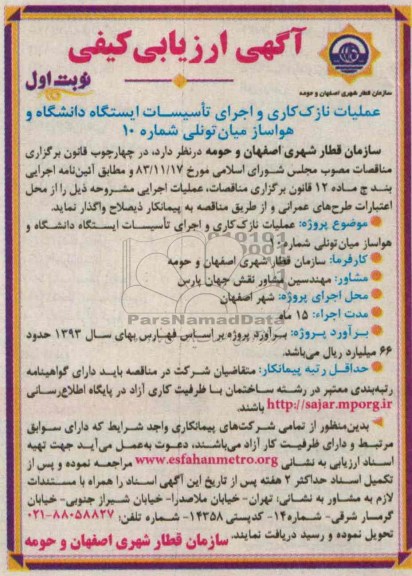 آگهی ارزیابی کیفی
نوبت اول
سازمان قطار شهری اصفهان و حومه
عملیات نازک‌کاری و اجرای تأسیسات ایستگاه دانشگاه و
هواساز میان‌تونلی شماره ۱۰
سازمان قطار شهری اصفهان و حومه درنظر دارد، در چهارچوب قانون برگزاری
مناقصات مصوب مجلس شورای اسلامی مورخ ۸۳/۱۱/۱۷ و مطابق آئین‌نامه اجرایی
بند ج ماده ۱۲ قانون برگزاری مناقصات، عملیات اجرایی مشروحه ذیل را از محل
اعتبارات طرح‌های عمرانی و از طریق مناقصه به پیمانکار ذیصلاح واگذار نماید.
موضوع پروژه: عملیات نازک‌کاری و اجرای تأسیسات ایستگاه دانشگاه و
هواساز میان‌تونلی شماره
کارفرما: سازمان قطار شهری اصفهان و حومه
مشاور: مهندسین مشاور نقش جهان پارس
محل اجرای پروژه: شهر اصفهان
مدت اجراء: ۱۵ ماه
برآورد پروژه: برآورد پروژه براساس فهارس بهای سال ۱۳۹۳ حدود
۶۶ میلیارد ریال می‌باشد.
حداقل رتبه پیمانکار: متقاضیان شرکت در مناقصه باید دارای گواهینامه
رتبه‌بندی معتبر در رشته ساختمان با ظرفیت کاری آزاد در پایگاه اطلاع‌رسانی
http://sajar.mporg.ir باشند.
بدین‌منظور از تمامی شرکت‌های پیمانکاری واجد شرایط که دارای سوابق
مرتبط و دارای ظرفیت کار آزاد می‌باشند، دعوت به‌عمل می‌آید جهت تهیه
اسناد ارزیابی به نشانی www.esfahanmetro.org مراجعه نموده و پس از
تکمیل اسناد حداکثر ۲ هفته پس از تاریخ این آگهی اسناد را همراه با مستندات
لازم به مشاور به نشانی: تهران- خیابان ملاصدرا- خیابان شیراز جنوبی- خیابان
گرمسار شرقی- شماره ۱۴- کدپستی ۱۴۳۵۸- شماره تلفن: ۸۸۰۵۸۸۲۷-۰۲۱
تحویل نموده و رسید دریافت نمایند.
سازمان قطار شهری اصفهان و حومه
ParsNamadData